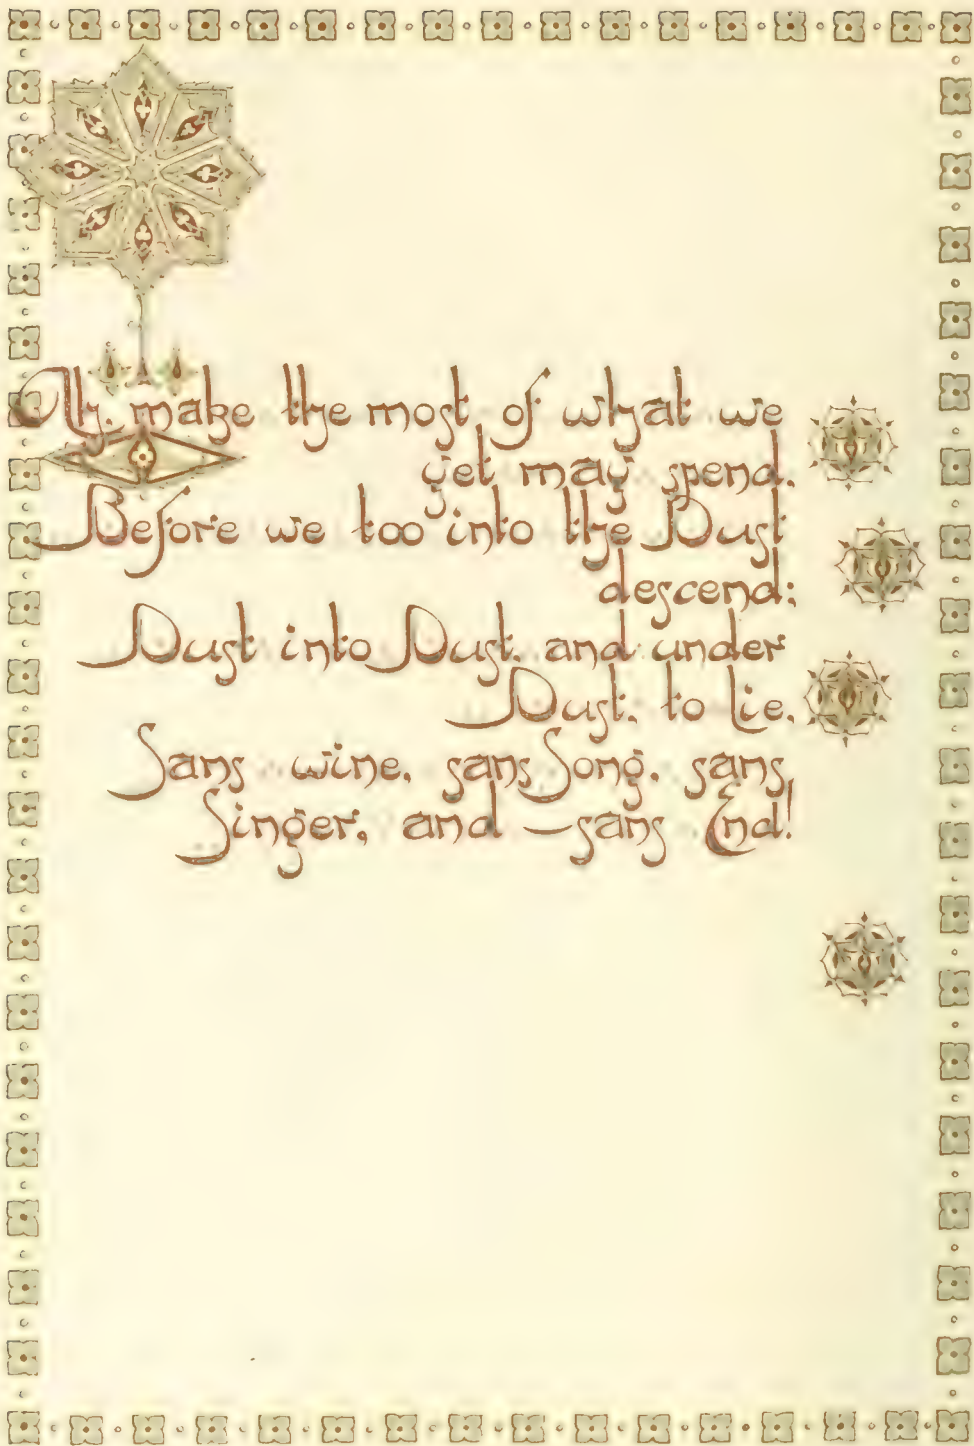 Ah, make the most of what we
yet may spend,
Before we too into the Dust
descend;
Dust into Dust, and under
Dust, to lie,
Sans wine, sans Song, sans
Singer, and — sans End!